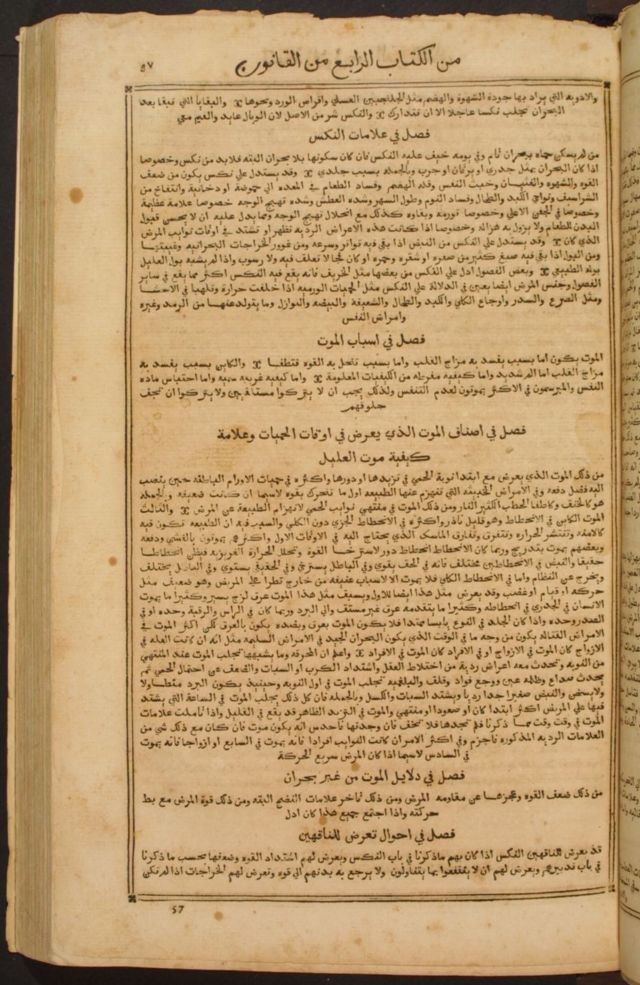 من الكتاب الرابع من القانون
٥٧
والادويه التي يراد بها جودة الشهوة والهضم مثل الجلنجبين العسلي واقراص الورد ونحوها والبقايا التي تبقا بعد
البحران تجلب نكسا عاجلا الا ان تتدارك والنكس شر من الاصل لان الوبال عايد
فصل في علامات النكس
من لم يسكن حماه ببحران تام وفي يومه خيف عليه النكس فان كان سكونها بلا بحران البته فلا بد من نكس وخصوصا
اذا كان البحران بمثل جدري او يرقان او جرب وبالجمله بسبب جلدي وقد يستدل علي نكس يكون من ضعف
القوه والشهوه والغثيان وخبث النفس وقله الهضم وفساد الطعام في المعده الي حموضة او دخانية وانتفاخ من
الشراسيف ونواحي الكبد والطحال وفساد النوم وطول السهر وشده العطش وشده تهيج الوجه خصوصا علامة عظيمة
وخصوصا في الجفن الاعلي وخصوصا تورمه وبقاوه كذلك مع انحلال تهيج الوجه ومما يدل عليه ان لا يحسن قبول
البدن للطعام ولا يزول به هزاله وخصوصا اذا كانت هذه الاعراض الرديه تظهر او تشتد في اوقات نوايب المرض
الذي كان وقد يستدل علي النكس من النبض اذا بقي فيه تواتر وسرعه ومن غوور الخراجات البحرانيه وغيبتها
ومن البول اذا بقي فيه صبغ كثير من صفره او شقره وحمره او كان فجا لا تعلق فيه ولا رسوب واذا لم يشبه بول العليل
بوله الطبيعي وبعض الفصول ادل علي النكس من بعضها مثل الخريف فانه يقع فيه النكس اكثر مما يقع في ساير
الفصول وجنس المرض ايضا يعين في الدلالة علي النكس مثل الحميات الورميه اذا خلفت حرارة وتلهبا في الاحشا
ومثل الصرع والسدر واوجاع الكلي والكبد والطحال والشقيقة والبيضه والنوازل وما يتولد عنها من الرمد وغيره
وامراض النفس
فصل في اسباب الموت
الموت يكون اما بسبب يفسد به مزاج القلب واما بسبب تنحل به القوه فتطفا والكاين بسبب يفسد به
مزاج القلب اما الم شديد واما كيفيه مفرطه من الكيفيات المعلومة واما كيفيه غريبه سميه واما احتباس ماده
النفس والمبرسمون في الاكثر يموتون لعدم التنفس ولذلك يجب ان لا يتركوا مستلقين ولا يتركوا ان تجف
حلوقهم
فصل في اصناف الموت الذي يعرض في اوقات الحميات وعلامة
كيفية موت العليل
من ذلك الموت الذي يعرض مع ابتدا نوبة الحمي في تزيدها او دورها واكثره في حميات الاورام الباطنه حين ينصب
اليه فضل دفعه وفي الامراض الخبيثه التي تنهزم عنها الطبيعه اول ما تتحرك بقوه لاسيما ان كانت ضعيفه وبالجمله
هو كالخنق وكاطفا الحطب الكثير النار ومن ذلك الموت في منتهي نوايب الحمي لانهزام الطبيعة عن المرض والثالث
الموت الكاين في الانحطاط وهو قليل نادر واكثره في الانحطاط الجزي دون الكلي والسبب فيه ان الطبيعه تكون فيه
كالامنه وتنتشر الحراره وتتفرق وتفارق الماسك الذي يحتاج اليه في الاوقات الاول واكثرهم يموتون بالغشي ودفعه
وبعضهم يموت بتدريج وربما كان الانحطاط انحطاط دور لاسترخا القوة وتحلل الحرارة الغريزيه فيظن انحطاطا
حقيقيا والنبض في الانحطاطين مختلف فانه في الحق يقوي وفي الباطل يسترخي وفي الحقيقي يستوي وفي الباطل يختلف
ويخرج عن النظام واما في الانحطاط الكلي فلا يموت الا لاسباب عنيفه من خارج تطرا علي المريض وهو ضعيف مثل
حركه او قيام او غضب وقد يعرض مثل هذا ايضا للاول ويسبق مثل هذا الموت عرق لزج يسير وكثيرا ما يموت
الانسان في الجدري في انحطاطه وكثيرا ما يتقدمه عرق غير مستو والي البرد وربما كان في الراس والرقبة وحده او في
الصدر وحده واذا كان الجلد في النوع يابسا ممتدا فلا يكون الموت بعرق وبضده يكون بالعرق اكثر الموت في
الامراض القتاله يكون من وجه ما في الوقت الذي يكون البحران الجيد في الامراض السليمه مثل انه ان كانت العله في
الازواج كان الموت في الازواج او في الافراد كان الموت في الافراد واعلم ان المحرقه وما يشبهها تجلب الموت عند المنتهي
من النوبه وتحدث معه اعراض رديه من اختلاط العقل واشتداد الكرب او السبات والضعف عن احتمال الحمي ثم
يحدث صداع وظلمه عين ووجع فواد وقلق والبلغميه تجلب الموت في اول النوبه وحينيذ يكون البرد متطاولا
ولا يسخن والنبض صغيرا جدا رديا ويشتد السبات والكسل وبالجمله فان كل ذلك يجلب الموت في الساعة التي يشتد
فيها علي المريض اكثر ابتدا كان او صعودا او منتهي والموت في التزيد الظاهر قد يقع في القليل واذا تاملت علامات
الموت في وقت وقت مما ذكرنا فلم تجدها فلا تخف فان وجدتها فاحدس انه يكون موت فان كان مع ذلك شي من
العلامات الرديه المذكوره فاجزم وفي اكثر الامر ان كانت النوايب افرادا فانه يموت في السابع او ازواجا فانه يموت
في السادس لاسيما اذا كان المرض سريع الحركة
فصل في دلايل الموت من غير بحران
من ذلك ضعف القوه وعجزها عن مقاومه المرض ومن ذلك تاخر علامات النضج البته ومن ذلك قوة المرض مع بط
حركته واذا اجتمع جميع هذا كان ادل
فصل في احوال تعرض للناقهين
قد يعرض للناقهين النكس اذا كان بهم ما ذكرنا في باب النكس ويعرض لهم اشتداد القوه وضعفها بحسب ما ذكرنا
في باب تدبيرهم ويعرض لهم ان لا ينتفعوا بما يتناولون ولا يرجع به بدنهم الي قوه وتعرض لهم الخراجات اذا لم تكن
57